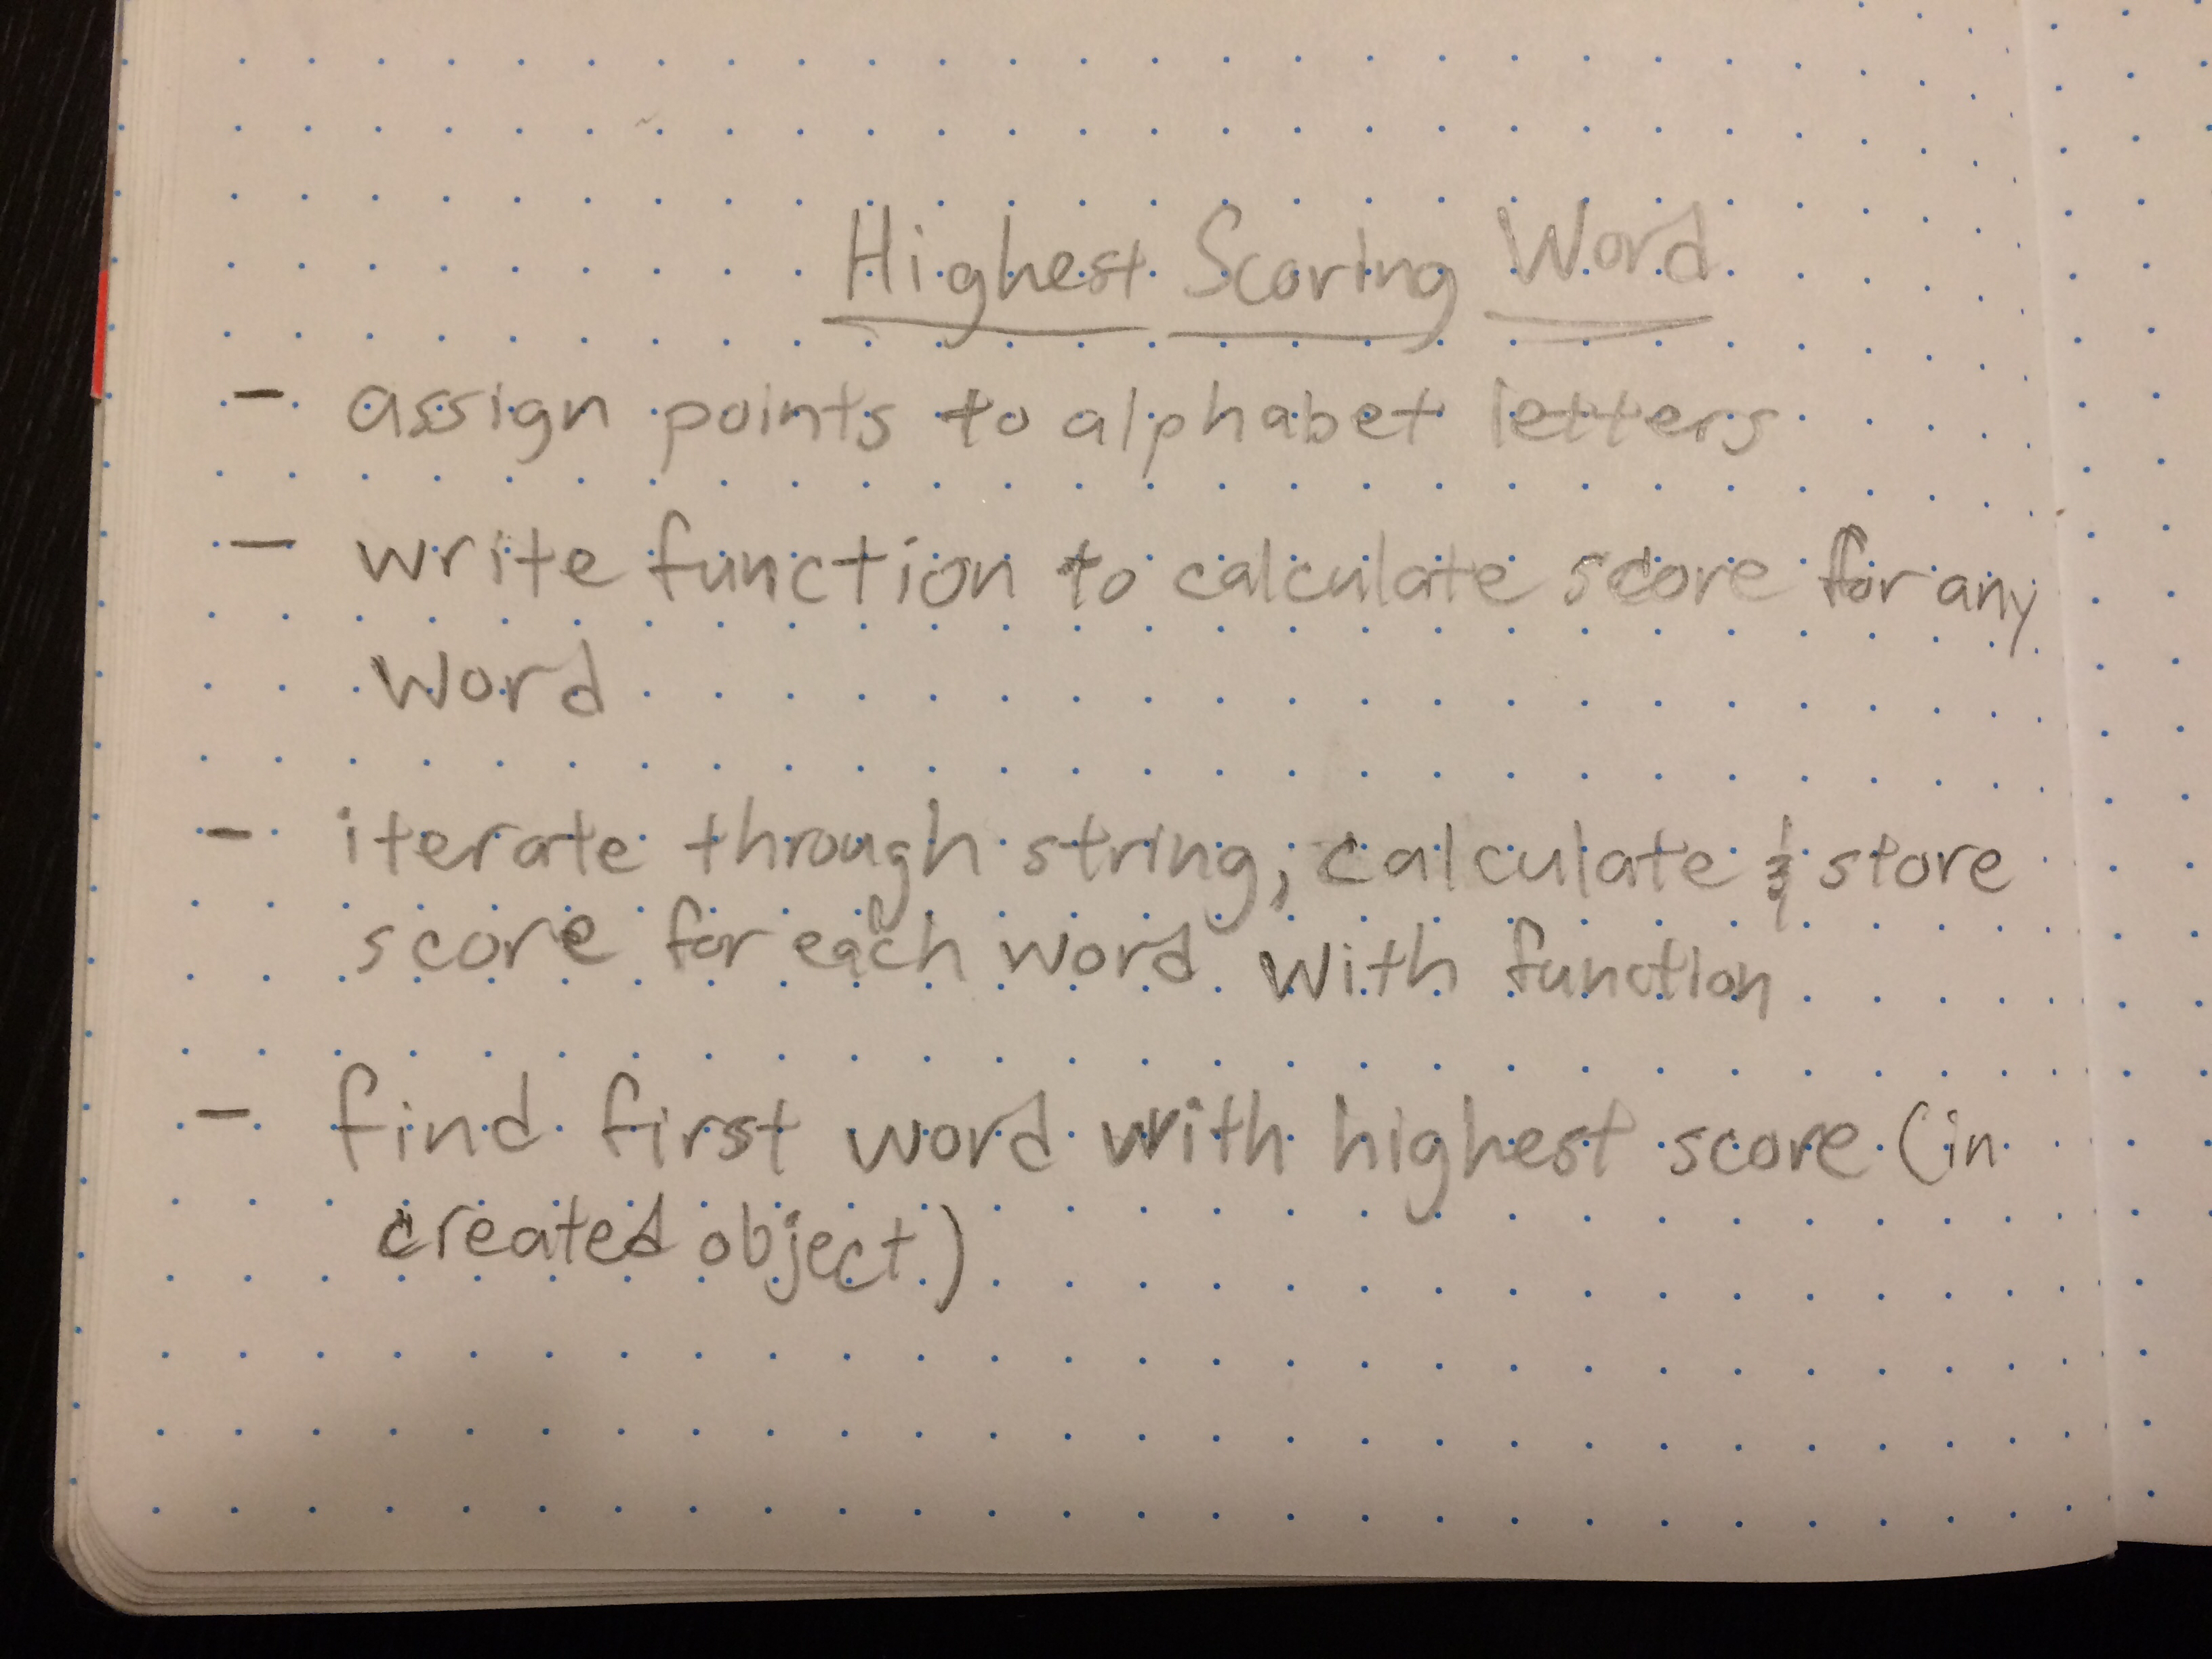 Highest Scoring Word
- assign points to alphabet letters
- write function to calculate score for any
word
- iterate through string, calculate & store
score for each word with function
- find first word with highest score (in
created object)